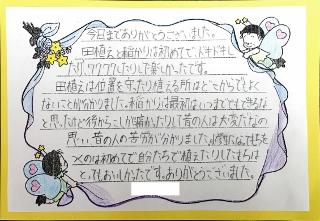 今日までありがとうございました。
田植えと稲かりは初めてで、ドキドキし
たり、ワクワクしたりして楽しかったです。
田植えは位置を守ったり植える所はどこからでもよく
ないことが分かりました。稲かりは最初はいつまででもできるな
と思ったけど後からこしが痛かたりして昔の人は大変だなと
思い、昔の人の苦労が分かりました。
のは初めてで自分たちで植えたりしたもちは
とてもおいしかったです。ありがとうございました。